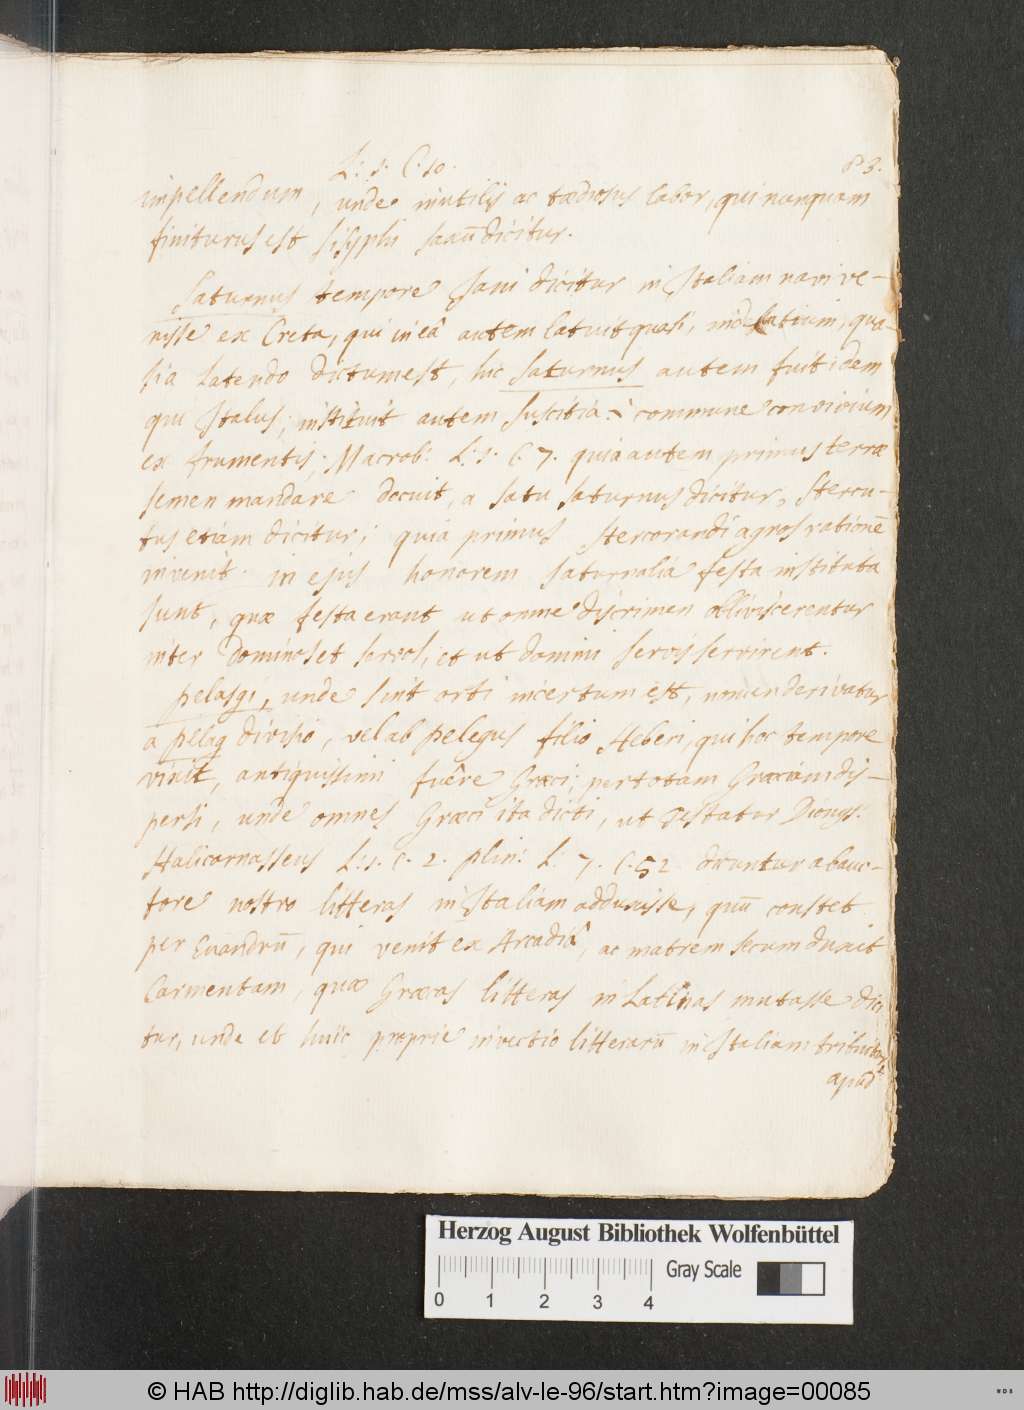 L: 1: C. 10. 83.
impellendum, unde inutilis ac tædiosus labor, qui nunquam
finiturus est sisyphi saxū dicitur.
Saturnus tempore Jani dicitur in Italiam navi ve-
nisse ex Creta, qui in eâ autem latuit quasi, inde latium, qua-
sia latendo dictum est, hic Saturnus autem fuit idem
qui Italus; instituit autem suscitia: i commune convivium
ex frumentis; Macrob: L: 1: C. 7. quia autem primus terræ
semen mandare docuit, a satu saturnus dicitur, Stercu-
tus etiam dicitur; quia primus stercorandi agros rationē
invenit. in ejus honorem saturnalia festa instituta
sunt, quæ festa erant ut omne discrimen oblivisceretur
inter Dominos et servos, et ut domini servis servirent.
Pelasgi, unde sint orti incertum est, nomen derivatur
a pelag divisio, vel ab pelegus filio Heberi, qui hoc tempore
vixit, antiquissimi fuêre Græci; per totam Græciam dis-
persi, unde omnes Græci ita dicti, ut testatur Dionys:
Halicarnasseus L: 1. C. 2. plin: L: 7. C. 52. dicuntur ab auc-
tore nostro litteras in Italiam adduxisse, quū constet
per Evandrū, qui venit ex Arcadiâ, ac matrem secum duxit
Carmentam, quæ Græcas litteras in Latinas mutasse dici
tur, unde et huic proprie invectio litterarū in Italiam tribuitur,
apud
Herzog August Bibliothek Wolfenbüttel
Gray Scale
0 1 2 3 4
© HAB http://diglib.hab.de/mss/alv-le-96/start.htm?image=00085